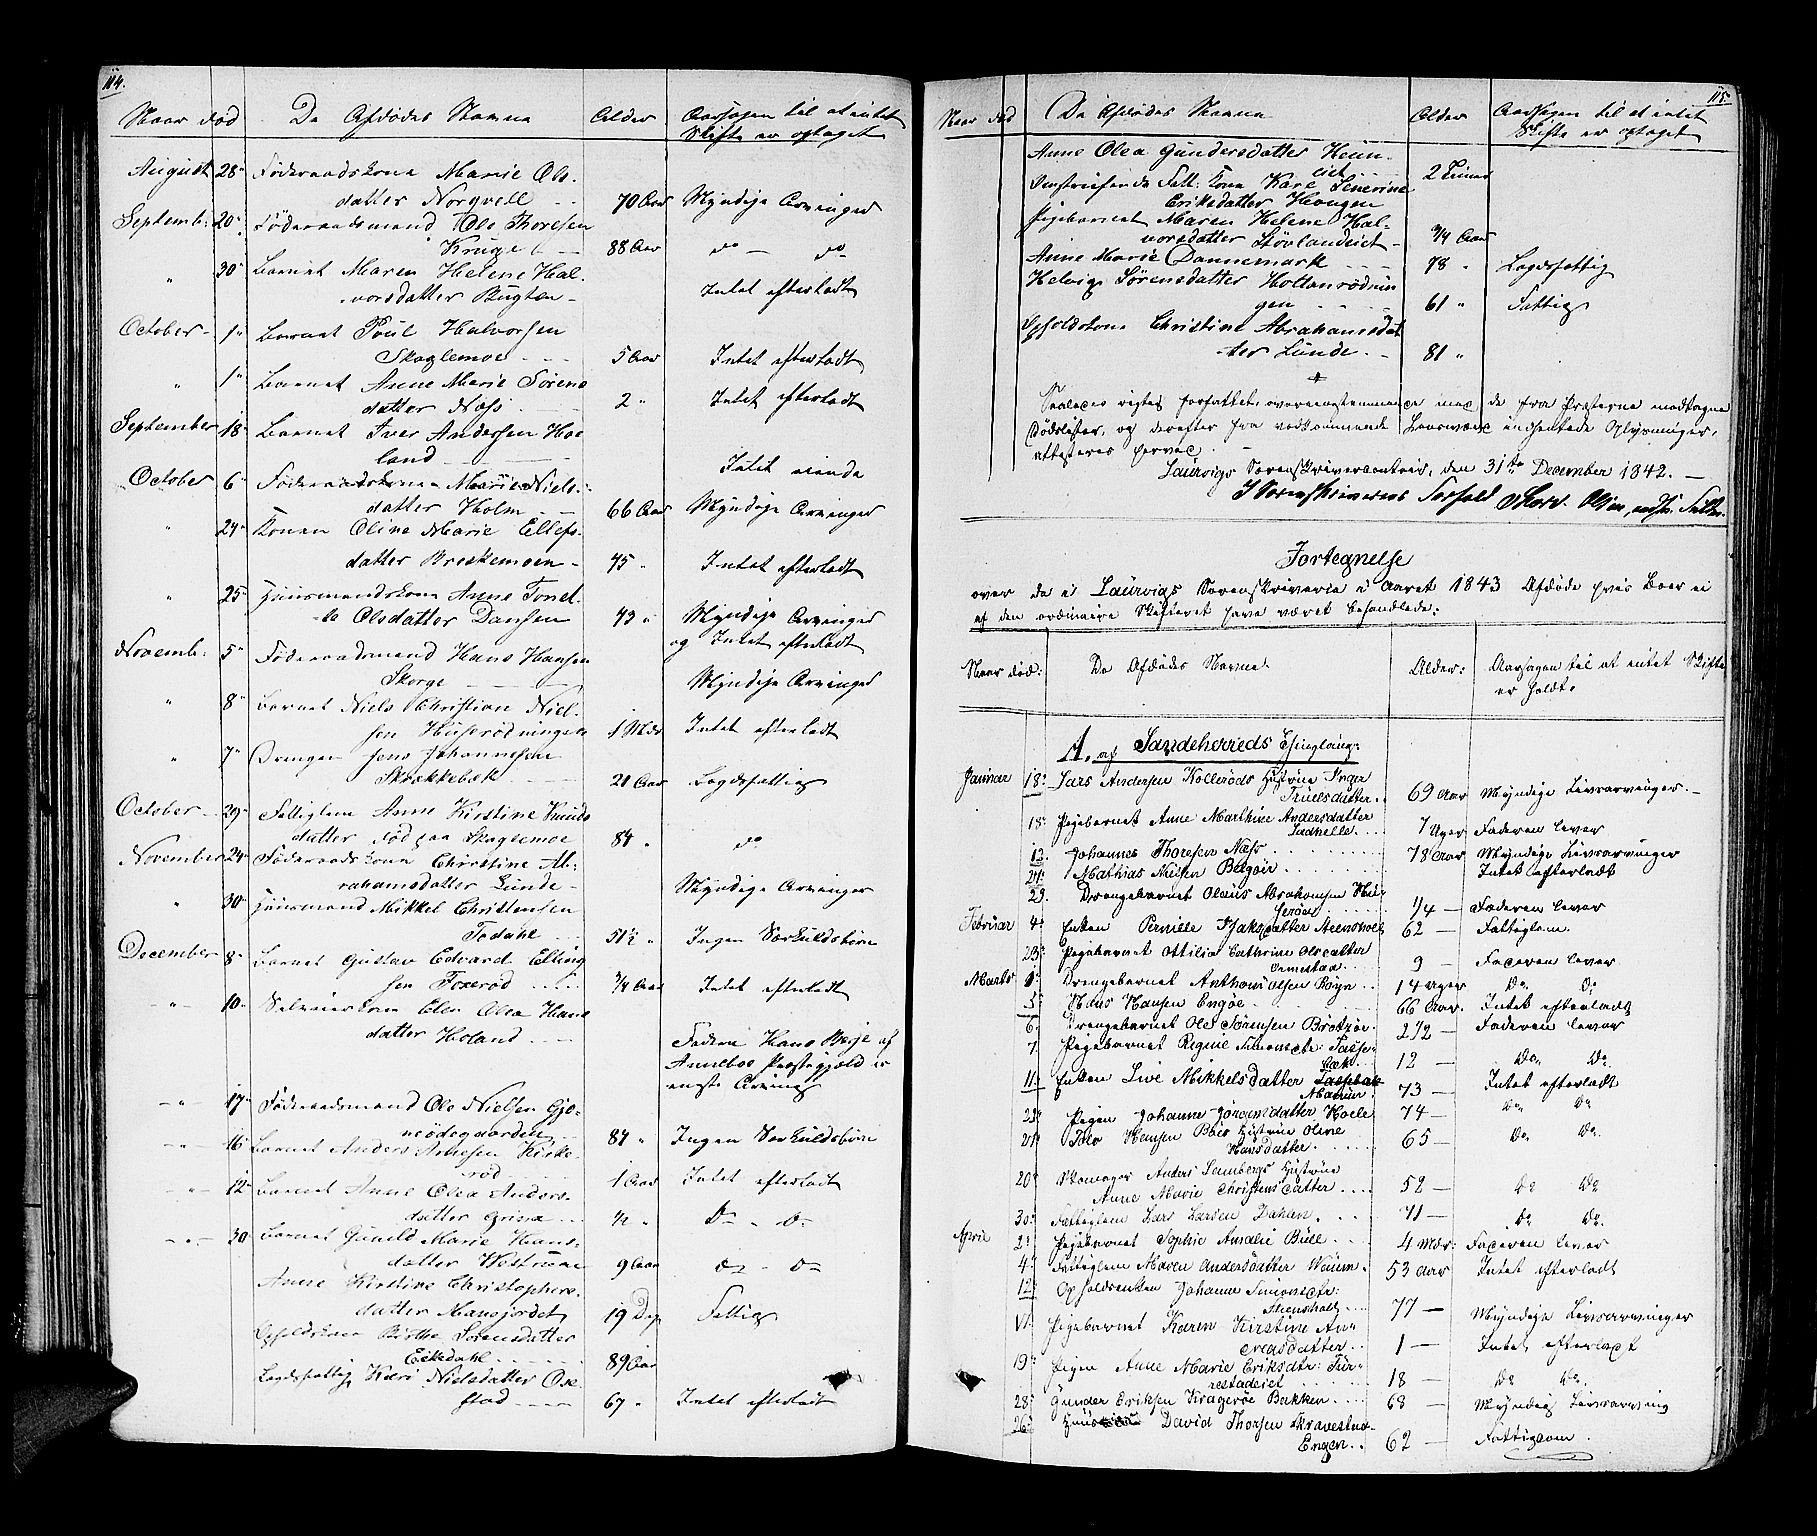 114.
Naar død De Afdødes Navne Alder Aarsagen til at intet
Skifte er optaget
August 28 Føderaadskone Marie Ols-
datter Norqvell 70 Aar Myndige Arvinger
Septemb: 20 Føderaadsmand Ole Thoresen
Kruge 88 Aar do — do
" 30 Barnet Maren Helene Hal-
vorsdatter Bugten Intet efterladt
October 1 Barnet Poul Halvorsen
Skaglemoe 5 Aar Intet efterladt
" 1 Barnet Anne Marie Sørens
datter Næss 2 " Intet efterladt
September 18 Barnet Iver Andersen Hoe
land Intet eiende
October 6 Føderaadskone Marie Niels-
datter Holm 66 Aar Myndige Arvinger
" 24 Konen Oline Marie Ellefs-
datter Breskemoen 75 " Intet efterladt
" 25 Huusmandskone Anne Tonet-
te Olsdatter Dansen 43 " Myndige Arvinger
og Intet efterladt
Novemb: 5 Føderaadsmand Hans Hansen
Skorge Myndige Arvinger
" 8 Barnet Niels Christian Niel-
sen Huserødningen 1 Mdr Intet efterladt
" 7 Drengen Jens Johannesen
Skrækkebek 21 Aar Lægdsfattig
October 29 Fattiglem Anne Kirstine Knuds
datter død paa Skaglemoe 84 " do
November 24 Føderaadskone Christine Ab-
rahamsdatter Lunde Myndige Arvinger
" 30 Huusmand Mikkel Christensen
Fodahl 51½ " Ingen Særkuldsbørn
December 8 Barnet Gustav Edvard Elling
sen Foxerød ¾ Aar Intet efterladt
" 10 Selveierkone Elen Olea Hans
datter Holand Faderen Hans Beije af
Anneboe Præstegjæld er
eneste Arving
" 17 Føderaadsmand Ole Nielsen Gjo-
neødegaarden 84 " Ingen Særkuldsbørn
" 16 Barnet Anders Arnesen Kirke-
rød 1 Aar Intet efterladt
" 12 Barnet Anne Olea Anders-
datter Grinæ ½ " do - do
" 30 Barnet Gunild Marie Hans-
datter Westrumme 9 Aar do - do
Anne Kirstine Christophers-
datter Mansjordet 19 Dage Fattig
Opholdskone Birthe Sørensdatter
Eikedahl 89 Aar
Lægdsfattig Kari Nielsdatter Oxe-
stad 67 " Intet efterladt
115.
Naar død De Afdødes Navne Alder Aarsagen til at intet
Skifte er optaget
Anne Olea Gundersdatter Heim-
eiet 2 Timer
Omstreifende Fatt: Kone Kari Severine
Eriksdatter Haugen
Pigebarnet Maren Helene Hal-
vorsdatter Støvlandeiet ¾ Aar
Anne Marie Dannemark 78 " Lægdsfattig
Helvig Sørensdatter Holtanrødnin
gen 61 " Fattig
Opholdskone Christine Abrahamsdat
ter Lunde 81 "
Saaledes rigtig forfattet, overeensstemmende med de fra Præsterne modtagne
Dødslister, og derefter fra vedkommende Lensmænd indhentede Oplysninger,
attesteres herved.
Laurvigs Sorenskrivercontoir, den 31te December 1842.
I Sorenskriverens Forfald
Fortegnelse
over de i Laurvigs Sorenskriverie i Aaret 1843 Afdøde hvis Boer ei
af den ordinaire Skifteret have været behandlede:
Naar død: De Afdødes Navne. Alder: Aarsagen til at intet Skifte
er holdt.
A. af Sandeherreds Thinglaug:
Januar 18 Lars Andersen Kollerøds Hustrue Inger
Truelsdatter 69 Aar Myndige Livsarvinger.
18 Pigebarnet Anne Marthine Andersdatter
Ladhelle 7 Uger Faderen lever
12 Johannes Thoresen Næss 78 Aar Myndige Livsarvinger
24 Mathias Nielsen Buegøen Intet efterladt
29 Drengebarnet Olaus Abrahamsen Hu-
serøed ¼ — Faderen lever
Februar 4 Enken Pernille Isaksdatter Steensholt 62 — Fattiglem.
23 Pigebarnet Ottilia Cathrine Olsdatter
Ormestad 9 — Faderen lever
Marts 1 Drengebarnet Anthon Olsen Røyn 14 Uger do do
5 Hans Hansen Engøe 66 Aar Intet efterladt
6 Drengebarnet Ole Sørensen Brotzøe 2½ — Faderen lever
7 Pigebarnet Regine Simonsdtr: Tasse-
bæk 12 — do do
11 Enken Live Mikkelsdatter 73 — Intet efterladt
22 Pigen Johanne Jørgensdatter Hoele 74 — do do
21 Peder Hansen Bøes Hustrue Oline
Hansdatter 65 — do do
20 Skomager Anders Lambergs Hustrue
Anne Marie Christensdatter 52 — do do
30 Fattiglem Lars Larsen Dahlen 71 — do do
April 2 Pigebarnet Sophie Amalie Bull 4 Mdr: Faderen lever
4 Fattiglem Maren Andersdatter Wiium 53 Aar Intet efterladt
12 Opholdsenken Johanne Simonsdtr:
Steensholt 77 — Myndige Livsarvinger
11 Pigebarnet Karen Kirstine An-
dreasdatter 1 — Intet efterladt
19 Pigen Anne Marie Eriksdtr: Fur-
restadeiet 18 — do do
28 Gunder Eriksen Kragerøe Bakken 68 — Myndig Livsarving
26 David Thorsen Skravestad-
Engen 62 — Fattiglem.